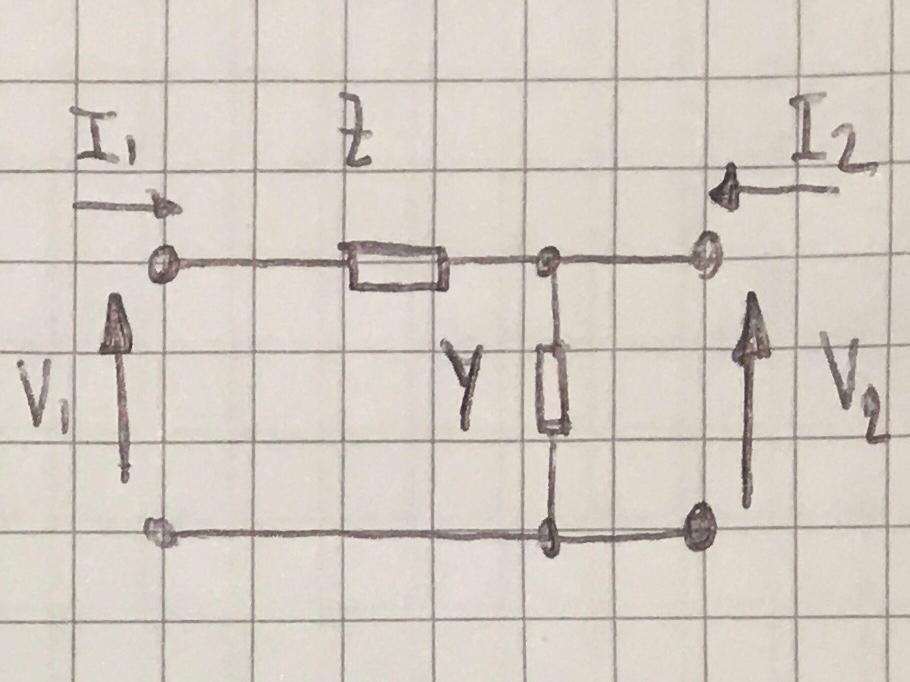 I₁ Z I₂
V₁ Y V₂